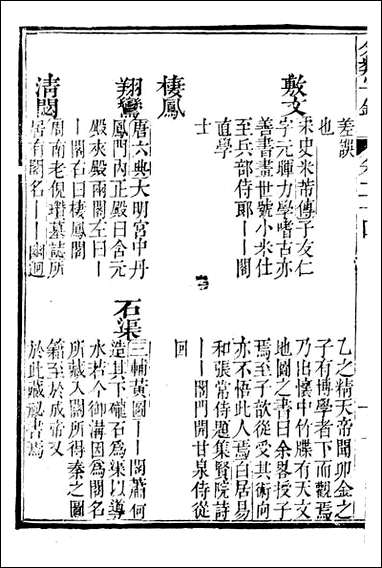 差誤
也
敷文
宋史米芾傳子友仁
字元暉力學嗜古亦
善書畫世號小米仕
至兵部侍郎——閣
直學
士
棲鳳
翔鸞
唐六典大明宮中丹
鳳門內正殿曰含元
殿夾殿兩閣左曰—
—閣右曰棲鳳閣
清閟
周南老倪瓚墓誌所
居有閣名——幽迥
乙之精天帝聞卯金之
子有博學者下而觀焉
乃出懷中竹牒有天文
地圖之書曰余畧授子
焉至子歆從受其術向
亦不悟此人焉白居易
和張常侍題集賢院詩
——閣門開甘泉侍從
回
石渠
三輔黃圖——閣蕭何
造其下礲石為渠以導
水若今御溝因為閣名
所藏入關所得秦之圖
籍至於成帝又
於此藏祕書焉